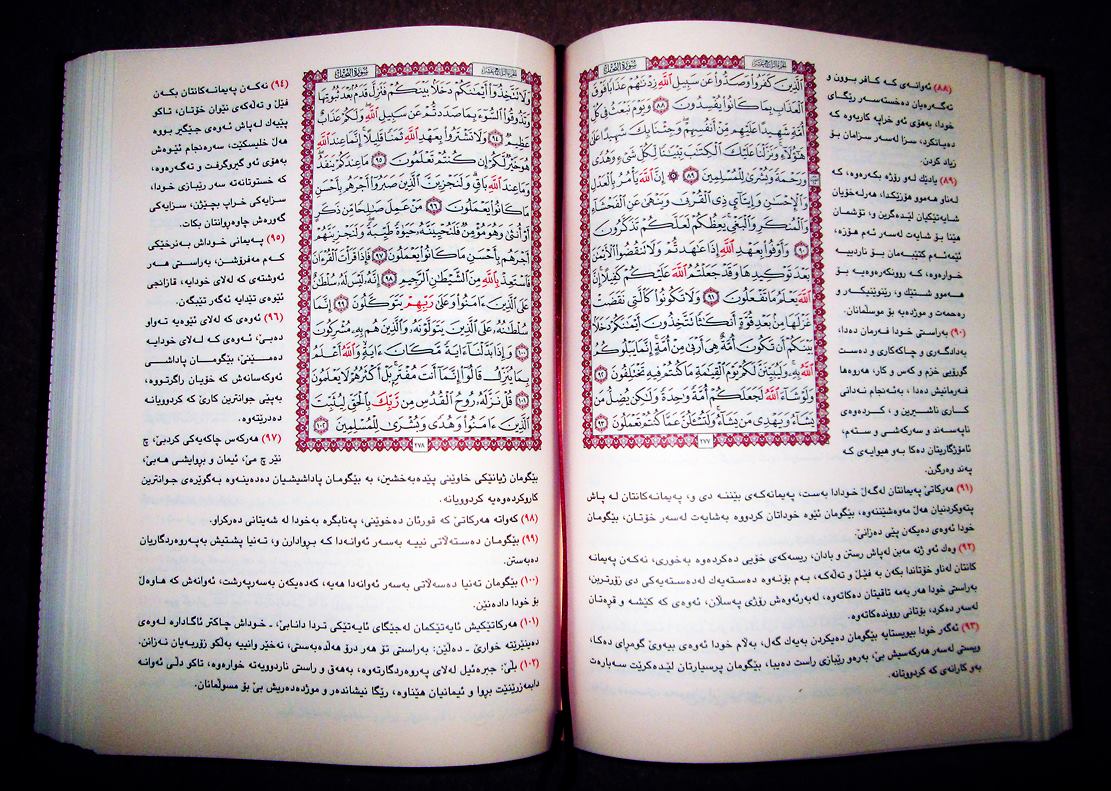 سُورَةُ النَّحْلِ
الَّذِينَ كَفَرُوا وَصَدُّوا عَن سَبِيلِ اللَّهِ زِدْنَاهُمْ عَذَابًا فَوْقَ
الْعَذَابِ بِمَا كَانُوا يُفْسِدُونَ ٨٨ وَيَوْمَ نَبْعَثُ فِي كُلِّ
أُمَّةٍ شَهِيدًا عَلَيْهِم مِّنْ أَنفُسِهِمْ وَجِئْنَا بِكَ شَهِيدًا عَلَىٰ
هَٰؤُلَاءِ وَنَزَّلْنَا عَلَيْكَ الْكِتَٰبَ تِبْيَٰنًا لِّكُلِّ شَيْءٍ وَهُدًى
وَرَحْمَةً وَبُشْرَىٰ لِلْمُسْلِمِينَ ٨٩ ۞ إِنَّ اللَّهَ يَأْمُرُ بِالْعَدْلِ
وَالْإِحْسَٰنِ وَإِيتَآئِ ذِي الْقُرْبَىٰ وَيَنْهَىٰ عَنِ الْفَحْشَاءِ
وَالْمُنكَرِ وَالْبَغْيِ يَعِظُكُمْ لَعَلَّكُمْ تَذَكَّرُونَ
٩٠ وَأَوْفُوا بِعَهْدِ اللَّهِ إِذَا عَٰهَدتُّمْ وَلَا تَنقُضُوا الْأَيْمَٰنَ
بَعْدَ تَوْكِيدِهَا وَقَدْ جَعَلْتُمُ اللَّهَ عَلَيْكُمْ كَفِيلًا إِنَّ
اللَّهَ يَعْلَمُ مَا تَفْعَلُونَ ٩١ وَلَا تَكُونُوا كَالَّتِي نَقَضَتْ
غَزْلَهَا مِن بَعْدِ قُوَّةٍ أَنكَٰثًا تَتَّخِذُونَ أَيْمَٰنَكُمْ دَخَلًا
بَيْنَكُمْ أَن تَكُونَ أُمَّةٌ هِيَ أَرْبَىٰ مِنْ أُمَّةٍ إِنَّمَا يَبْلُوكُمُ
اللَّهُ بِهِ وَلَيُبَيِّنَنَّ لَكُمْ يَوْمَ الْقِيَٰمَةِ مَا كُنتُمْ فِيهِ تَخْتَلِفُونَ ٩٢
وَلَوْ شَاءَ اللَّهُ لَجَعَلَكُمْ أُمَّةً وَٰحِدَةً وَلَٰكِن يُضِلُّ مَن
يَشَاءُ وَيَهْدِي مَن يَشَاءُ وَلَتُسْـَٔلُنَّ عَمَّا كُنتُمْ تَعْمَلُونَ ٩٣
٢٧٧
(٨٨) ئەوانەی کە کافر بوون و
نەگەرەیان دەخستەسەر ڕێگای
خودا، بەهۆی ئەو خراپە کاریەوە کە
دەیانکرد، سزا لەسەر سزامان بۆ
زیاد کردن.
(٨٩) یادێك لەو ڕۆژە بکەرەوە، کە
لەناو هەموو هۆزێکدا، هەرلەخۆیان
شایەتێکیان لێدەگرین و، تۆشمان
هێنا بۆ شایەت لەسەر ئەم هۆزە،
ئێمەئەم کتێبەمان بۆ ناردبیـە
خوارەوە، کە ڕوونکەرەوەیە بۆ
هەموو شتێك و، ڕێنوێنیکەر و
ڕەحمەت و موژدەیە بۆ موسڵمانان.
(٩٠) بەراستی خودا فەرمان دەدا،
بەدادگەری و چاکەکاری و دەست
گرۆیی خزم و کەس و کار، هەروەها
فەرمانیش دەدا، بەئەنجام نەدانی
کاری ناشیرین و ، کردەوەی
ناپەسەند و سەرکەشی و ستەم،
ئامۆژگاریتان دەکا بەو هیوایەی کە
پەند وەرگرن.
(٩١) هەرکاتێ پەیمانتان لەگەڵ خودادا بەست، پەیمانەکەی بێننە دی و، پەیمانەکانتان لە پاش
پتەوکردنیان هەڵ مەوەشێننەوە، بێگومان ئێوە خوداتان کردووە بەشایەت لەسەر خۆتان، بێگومان
خودا ئەوەی دەیکەن پێی دەزانێ.
(٩٢) وەك ئەو ژنە مەبن لەپاش رستن و بادان، ریسەکەی خۆیی دەکردەوە بەخوری، نەکەن پەیمانە
کانتان لەناو خۆتاندا بکەن بە فێڵ و تەڵەکە، بەم بۆنەوە دەستەیەك لەدەستەیەکی دی زۆرترین،
بەراستی خودا هەر بەمە تاقیتان دەکاتەوە، لەبەرئەوەش ڕۆژی پەسڵان، ئەوەی کە کێشە و قڕەتان
لەسەر دەکرد، بۆتانی ڕووندەکاتەوە.
(٩٣) ئەگەر خودا بیویستایە بێگومان دەیکردن بەیەك گەل، بەڵام خودا ئەوەی بیەوێ گومڕای دەکا،
ویستی لەسەر هەرکەسیش بێ، بەرەو ڕێبازی ڕاست دەیبا، بێگومان پرسیارتان لێدەکرێت سەبارەت
بەو کارانەی کە کردووتانە.
سُورَةُ النَّحْلِ
وَلَا تَتَّخِذُوا أَيْمَٰنَكُمْ دَخَلًا بَيْنَكُمْ فَتَزِلَّ قَدَمٌ بَعْدَ ثُبُوتِهَا
وَتَذُوقُوا السُّوءَ بِمَا صَدَدتُّمْ عَن سَبِيلِ اللَّهِ وَلَكُمْ عَذَابٌ
عَظِيمٌ ٩٤ وَلَا تَشْتَرُوا بِعَهْدِ اللَّهِ ثَمَنًا قَلِيلًا إِنَّمَا عِندَ اللَّهِ
هُوَ خَيْرٌ لَّكُمْ إِن كُنتُمْ تَعْلَمُونَ ٩٥ مَا عِندَكُمْ يَنفَدُ
وَمَا عِندَ اللَّهِ بَاقٍ وَلَنَجْزِيَنَّ الَّذِينَ صَبَرُوا أَجْرَهُم بِأَحْسَنِ
مَا كَانُوا يَعْمَلُونَ ٩٦ مَنْ عَمِلَ صَٰلِحًا مِّن ذَكَرٍ
أَوْ أُنثَىٰ وَهُوَ مُؤْمِنٌ فَلَنُحْيِيَنَّهُ حَيَوٰةً طَيِّبَةً وَلَنَجْزِيَنَّهُمْ
أَجْرَهُم بِأَحْسَنِ مَا كَانُوا يَعْمَلُونَ ٩٧ فَإِذَا قَرَأْتَ الْقُرْءَانَ
فَاسْتَعِذْ بِاللَّهِ مِنَ الشَّيْطَٰنِ الرَّجِيمِ ٩٨ إِنَّهُ لَيْسَ لَهُ سُلْطَٰنٌ
عَلَى الَّذِينَ ءَامَنُوا وَعَلَىٰ رَبِّهِمْ يَتَوَكَّلُونَ ٩٩ إِنَّمَا
سُلْطَٰنُهُ عَلَى الَّذِينَ يَتَوَلَّوْنَهُ وَالَّذِينَ هُم بِهِ مُشْرِكُونَ
١٠٠ وَإِذَا بَدَّلْنَا ءَايَةً مَّكَانَ ءَايَةٍ وَاللَّهُ أَعْلَمُ
بِمَا يُنَزِّلُ قَالُوا إِنَّمَا أَنتَ مُفْتَرٍ بَلْ أَكْثَرُهُمْ لَا يَعْلَمُونَ
١٠١ قُلْ نَزَّلَهُ رُوحُ الْقُدُسِ مِن رَّبِّكَ بِالْحَقِّ لِيُثَبِّتَ
الَّذِينَ ءَامَنُوا وَهُدًى وَبُشْرَىٰ لِلْمُسْلِمِينَ ١٠٢
٢٧٨
(٩٤) نەکەن پەیمانەکانتان بکەن
فێڵ و تەڵەکەی نێوان خۆتان، تاکو
پێیەك لەپاش ئەوەی جێگیر بووە
هەڵ خلیسکێت، سەرەنجام ئێوەش
بەهۆی ئەو گیروگرفت و نەگەرەوە،
کە خستوتانەتە سەر ڕێبازی خودا،
سزایەکی خراپ بچێژن، سزایەکی
گەورەش چاوەڕوانتان بکات.
(٩٥) پەیمانی خوداش بەنرخێکی
کەم مەفرۆشن، بەراستی هەر
ئەوشتەی کە لەلای خودایە، قازانجی
ئێوەی تێدایە ئەگەر تێبگەن.
(٩٦) ئەوەی کە لەلای ئێوەیە تەواو
دەبێ، ئەوەی کە لەلای خودایە
دەمێنێ، بێگومان پاداشی
ئەوکەسانەش کە خۆیان ڕاگرتووە،
بەپێی جوانترین کارێ کە کردوویانە
دەدرێتەوە.
(٩٧) هەرکەس چاکەیەکی کردبێ، چ
نێر چ مێ، ئیمان و بڕوایشی هەبێ،
بێگومان ژیانێکی خاوێنی پێدەبەخشین، بە بێگومان پاداشیشیان دەدەینەوە بەگوێرەی جوانترین
کاروکردەوەیە کردوویانە.
(٩٨) کەواتە هەرکاتێ کە قورئان دەخوێنی، پەنابگرە بەخودا لە شەیتانی دەرکراو.
(٩٩) بێگومان دەستەڵاتی نییە بەسەر ئەوانەدا کە بڕوادارن و، تەنیا پشتیش بەپەروەردگاریان
دەبەستن.
(١٠٠) بێگومان تەنیا دەسەڵاتی بەسەر ئەوانەدا هەیە، کەدەیکەن بەسەرپەرشت، ئەوانەش کە هاوەڵ
بۆ خودا دادەنێن.
(١٠١) هەرکاتێکیش ئایەتێکمان لەجێگای ئایەتێکی تردا دانابێ، - خوداش چاکتر ئاگادارە لەوەی
دەینێرێتە خوارێ - دەڵێن: بەراستی تۆ هەر درۆ هەڵدەبەستی، نەخێر وانییە بەڵکو زۆربەیان نەزانن.
(١٠٢) بڵێ: جبرەئیل لەلای پەروەردگارتەوە، بەهەق و ڕاستی ناردوویەتە خوارەوە، تاکو دڵی ئەوانە
دابمەزرێنێت بڕوا و ئیمانیان هێناوە، ڕێگا نیشاندەر و موژدەدەریش بێ بۆ مسوڵمانان.